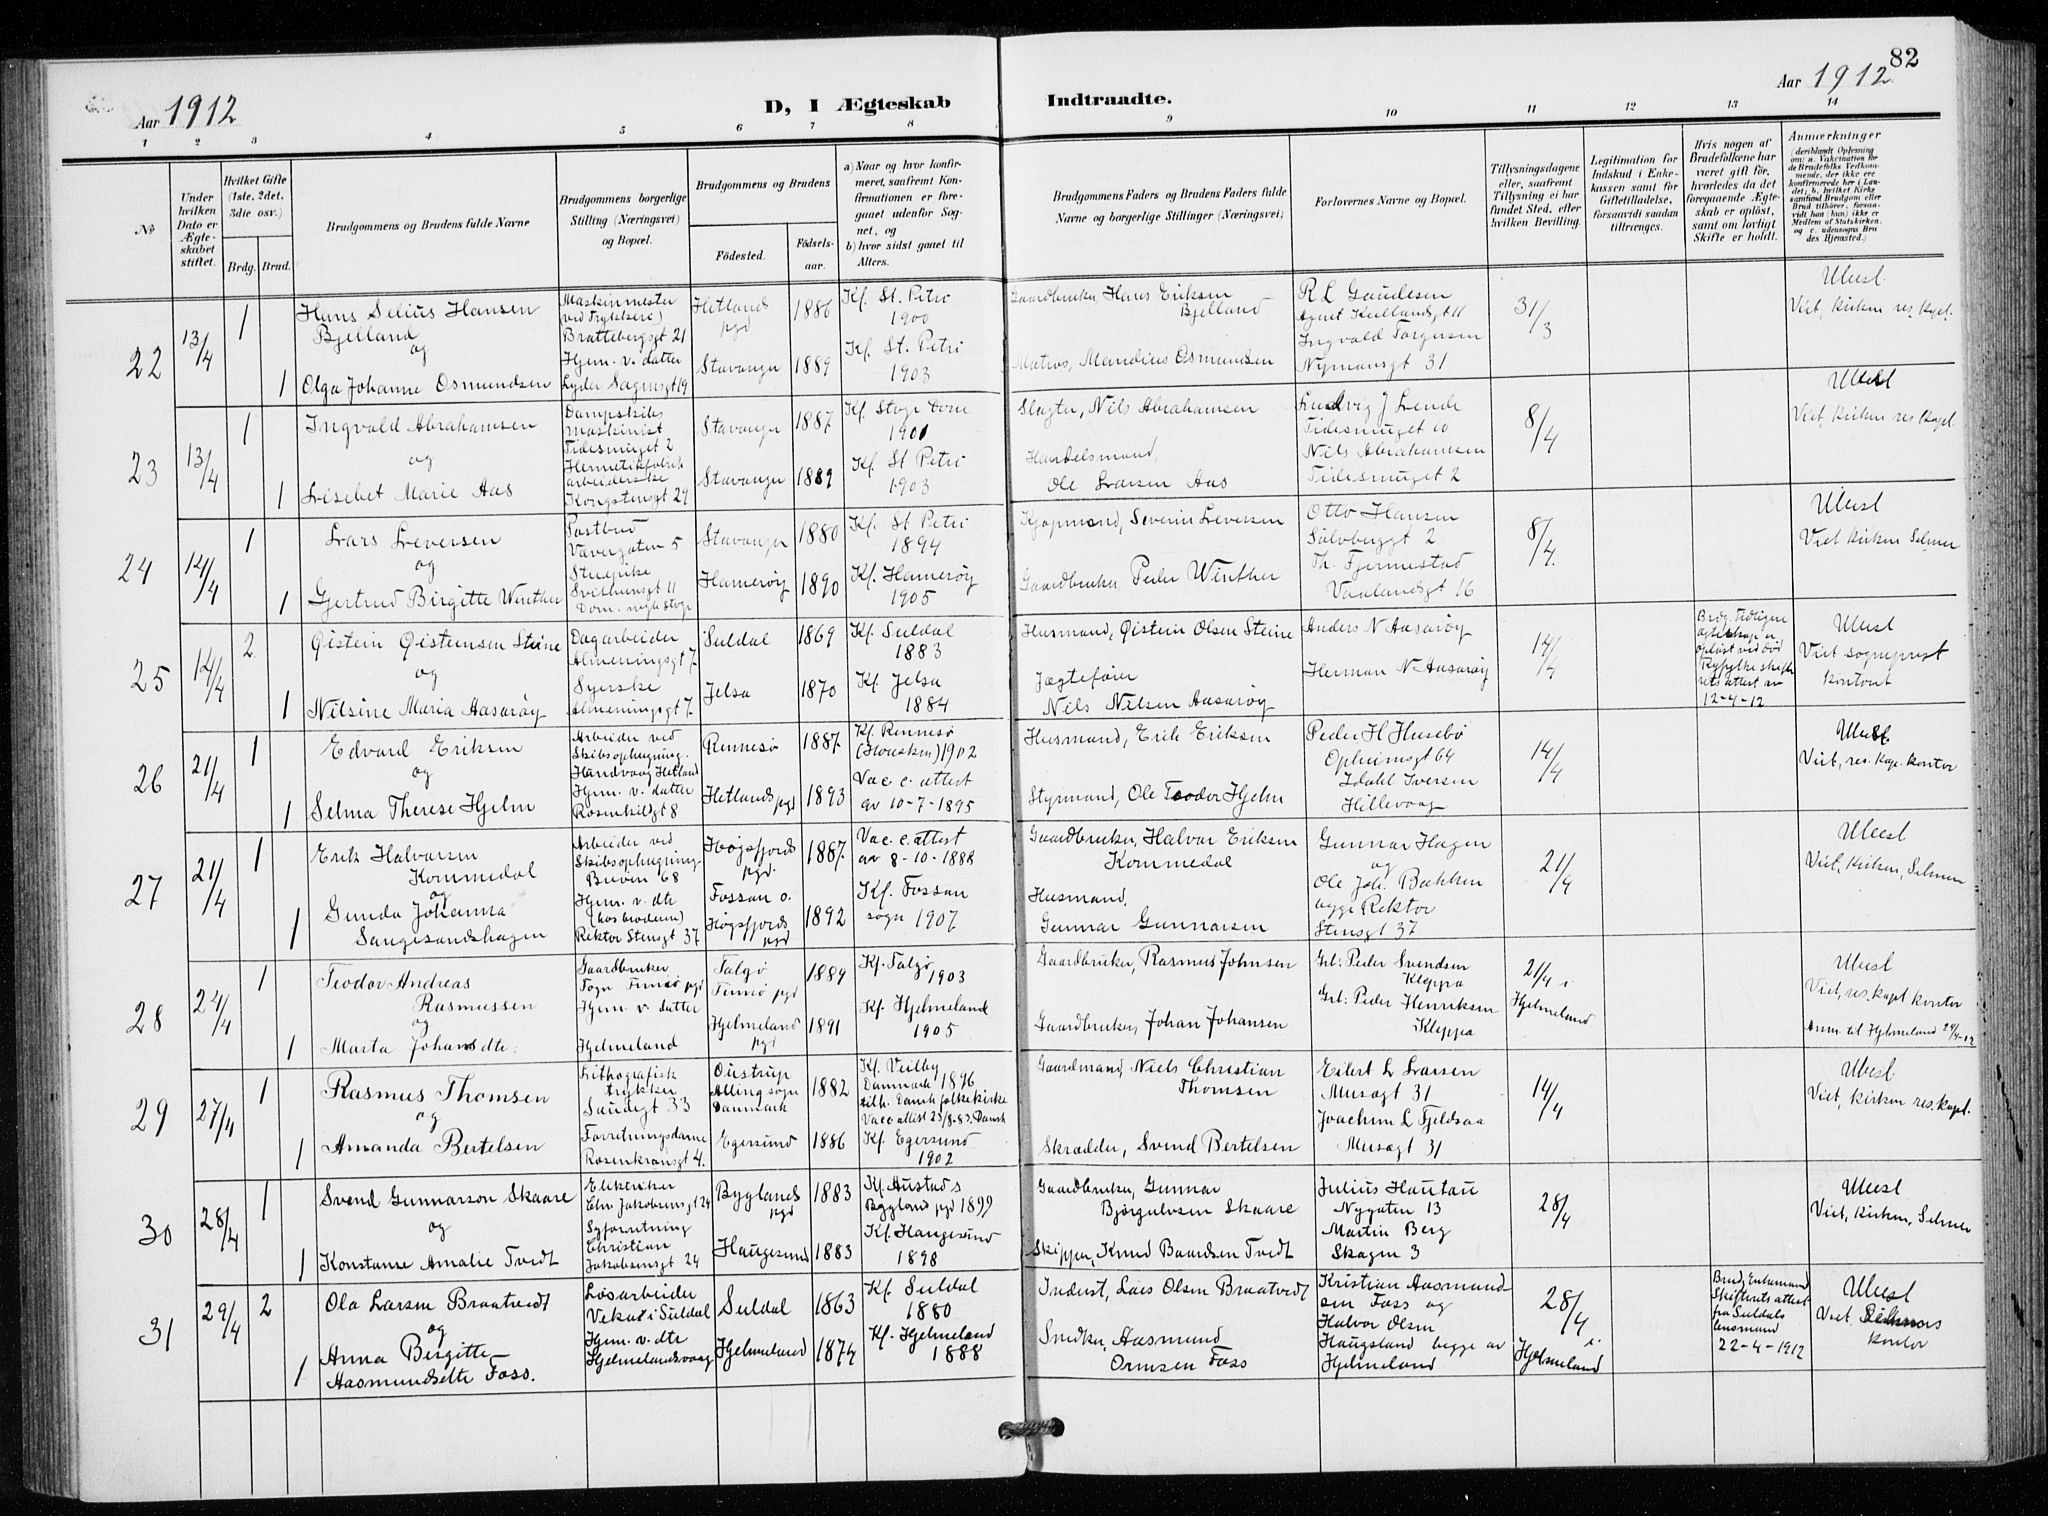 82
Aar 1912
D, I Ægteskab Indtraadte.
Aar 1912
1 2 3 4 5 6 7 8 9 10 11 12 13 14
No
Under hvilken Dato er Ægteskabet stiftet.
Hvilket Gifte (1ste, 2det, 3die osv.)
Brdg. Brud.
Brudgommens og Brudens fulde Navne
Brudgommens borgerlige Stilling (Næringsvei) og Bopœl.
Brudgommens og Brudens
Födested.
Födsels-aar.
a) Naar og hvor konfirmeret, saafremt Konfirmationen er foregaaet udenfor Sognet, og
b) hvor sidst gaaet til Alters.
Brudgommens Faders og Brudens Faders fulde Navne og borgerlige Stillinger (Næringsvei)
Forlovernes Navne og Bopœl.
Tillysningsdagene eller, saafremt Tillysning ei har fundet Sted, efter hvilken Bevilling.
Legitimation for Indskud i Enkekassen samt for Giftetilladelse, forsaavidt saadan tiltrænges.
Hvis nogen af Brudefolkene har været gift før, hvorledes da det foregaaende Ægteskab er oplöst, samt om lovligt Skifte er holdt.
Anmærkninger
(deriblandt Oplysning om: a. Vakcination for de Brudefolks Vedkommende, der ikke ere konfirmerede her i Landet; b. hvilket Kirkesamfund Brudgom eller Brud tilhörer, forsaavidt han (hun) ikke er Medlem af Statskirken, og c. udensogns Brudes Hjemsted.)
22
13/4
1
Hans Selius Hansen
Bjelland
og
1 Olga Johanne Osmundsen
Maskinmester
ved Trykkeri)
Brattebergsgt 21
Hjem. v. datter
Lyder Sagensgt 19
Hetland
pgd
Stavanger
1886
1889
Kf. St. Petri
1900
Kf. St. Petri
1903
Gaardbruker, Hans Eriksen
Bjelland
Matros, Mandius Osmundsen
R L Gaudesen
Agnet Kiellandsgt 11
Ingvald Torgersen
Nymansgt 31
31/3
Ubesl.
Viet, kirken res. Kapel.
23
13/4
1
Ingvald Abrahamsen
og
1 Lisebet Marie Aas
Dampskibs
maskinist
Tidesmuget 2
Hermetikfabrik
arbeiderske
Kongstensgt 29
Stavanger
Stavanger
1887
1889
Kf. Stvgr Dom
1901
Kf. St Petri
1903
Slagter, Nils Abrahamsen
Handelsmand,
Ole Larsen Aas
Ludvig J Lende
Tidesmuget 10
Nils Abrahamsen
Tidesmuget 2
8/4
Ubesl
Viet, kirken res Kapel.
24
14/4
1
Lars Leversen
og
1 Gjertrud Birgitte Winther
Postbud
Vævergaten 5
Stuepike
Dom. mgh Stvgr
Stavanger
Hamerøy
1880
1890
Kf. St Petri
1894
Kf. Hamerøy
1905
Kjøpmand, Severin Leversen
Gaardbruker, Peder Winther
Otto Hansen
Sølvberggt 2
Th. Fjermestad
Vaalandsgt 16
8/4.
Ubesl
Viet kirken Selmer
25
14/4
2.
Øistein Øisteinsen Steine
og
1 Nilsine Maria Aasarøy
Dagarbeider
Almeningsgt 7.
Syerske
Almeningsgt 7.
Suldal
Jelsa
1869
1870
Kf. Suldal
1883
Kf. Jelsa
1884
Husmand, Øistein Olsen Steine
Jægtefører
Nils Nilsen Aasarøy
Anders N Aasarøy
Herman N Aasarøy
14/4
Brdg. Tidligere
egteskap er
opløst ved død
Ryfylke skifte
rets attest av
12-4-12
Ubesl
Viet sogneprest
kontoret
26
21/4
1
Edvard Eriksen
og
1 Selma Therese Hjelm
Arbeider ved
Skibsophugning.
Hundvaag Hetland
Hjem. v. datter
Rosenkildgt 8
Rennesø
Hetlands pgd
1887.
1893
Kf. Rennesø
1902
Vac. c. attest
av 10-7-1895
Husmand, Erik Eriksen
Styrmand, Ole Teodor Hjelm
Peder H Husebø
Opheimsgt 64
Idahl Iversen
Hillevaag
14/4
Ubesl
Viet, res. Kap. kontor
27
21/4
1
Erik Halvorsen
Kommedal
og
1 Gunda Johanna
Sangesandshagen
Arbeider ved
Skibsophugning
Buøen 68
Hjem. v. dte
(hos broderen)
Rektor Stensgt 37
Høgsfjords
pgd.
Fossan o.
Høgsfjords
pgd
1887.
1892
Vac. c. attest
av 8-10-1888
Kf. Fossan
sogn 1907
Gaardbruker, Halvor Eriksen
Kommedal
Husmand,
Gunnar Gunnarsen
Gunnar Hagen
og
Ole Joh. Bakken
begge Rektor
Stensgt 37
21/4
Ubesl
Viet, Kirken, Selmer
28
24/4
1
Teodor Andreas
Rasmussen
og
1 Marta Johansdte.
Gaardbruker
Fogn Finnø pgd
Hjem. v. datter
Hjelmeland
Talgø
Finnø pgd
Hjelmeland
pgd
1889
1891
Kf. Talgø
1903
Kf. Hjelmeland
1905
Gaardbruker, Rasmus Johnsen
Gaardbruker, Johan Johansen
Grb: Peder Svendsen
Kleppa
Grb: Peder Henriksen
Kleppa
21/4 i
Hjelmeland
Ubesl
Viet, res. kapt kontor
Anm. til Hjelmeland 24/4-12
29
27/4
1
Rasmus Thomsen
og
1 Amanda Bertelsen
Lithografisk
trykker
Saudegt 33
Forretningsdame
Rosenkransgt 4.
Oustrup
Alling sogn
Danmark
Egersund
1882
1886
Kf. Veilby
Danmark 1896
tilh. Dansk folkekirke
Vac c attest 23/8-83. Dansk
Kf. Egersund
1902
Gaardmand, Niels Christian
Thomsen
Skrædder, Svend Bertelsen
Eilert L Larsen
Musægt 31
Joachim L Fjeldsaa
Musægt 31
14/4
Ubesl
Viet, kirken res. kapel.
30
28/4
1
Svend Gunnarson Skaare
og
1 Konstanse Amalie Tvedt
Elektriker
Chr. Jakobsensgt 24
Syforretning
Christian
Jakobsensgt 24
Byglands
pgd
Haugesund
1883
1883
Kf. Austads
Bygland pgd 1899
Kf. Haugesund
1898
Gaardbruker, Gunnar
Bjørgulvsen Skaare
Skipper, Knud Baardsen Tvedt
Julius Hautau
Nygaten 13
Martin Berg
Skagen 3
28/4
Ubesl
Viet, Kirken, Selmer
31
29/4
2
Ola Larsen Braatveidt
og
1 Anna Birgitte
Aasmundsdte Foss.
Løsarbeider
Vekar i Suldal
Hjem. v. dte
Hjelmelandsvaag
Suldal
Hjelmeland
1863
1874
Kf. Suldal
1880
Kf. Hjelmeland
1888
Inderst, Lars Olsen Braatvedt
Snedker, Aasmund
Ormsen Foss
Kristian Aasmund-
sen Foss og
Halvor Olsen
Haugsland begge av
Hjelmeland
28/4
i
Hjelmeland
Brudg. Enkemand
Skifterets attest
fra Suldals
lensmand
22-4-1912
Ubesl
Viet Selmers
kontor